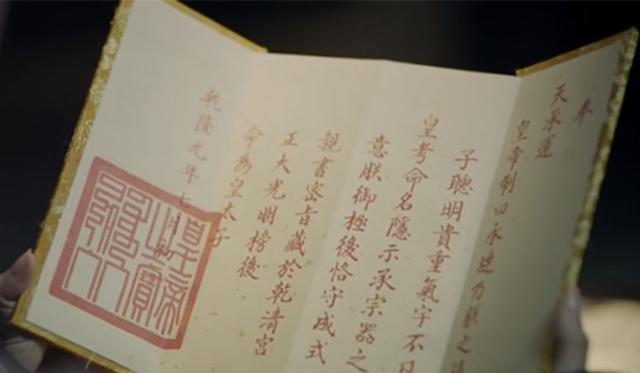 奉
天承運
皇帝制曰永璉乃朕之嫡
子聰明貴重氣宇不
皇考命名隱示承宗器之
意朕御極後恪守成式
親書密旨藏於乾清宮
正大光明榜後
命為皇太子
乾隆元年七月初
皇帝之寶